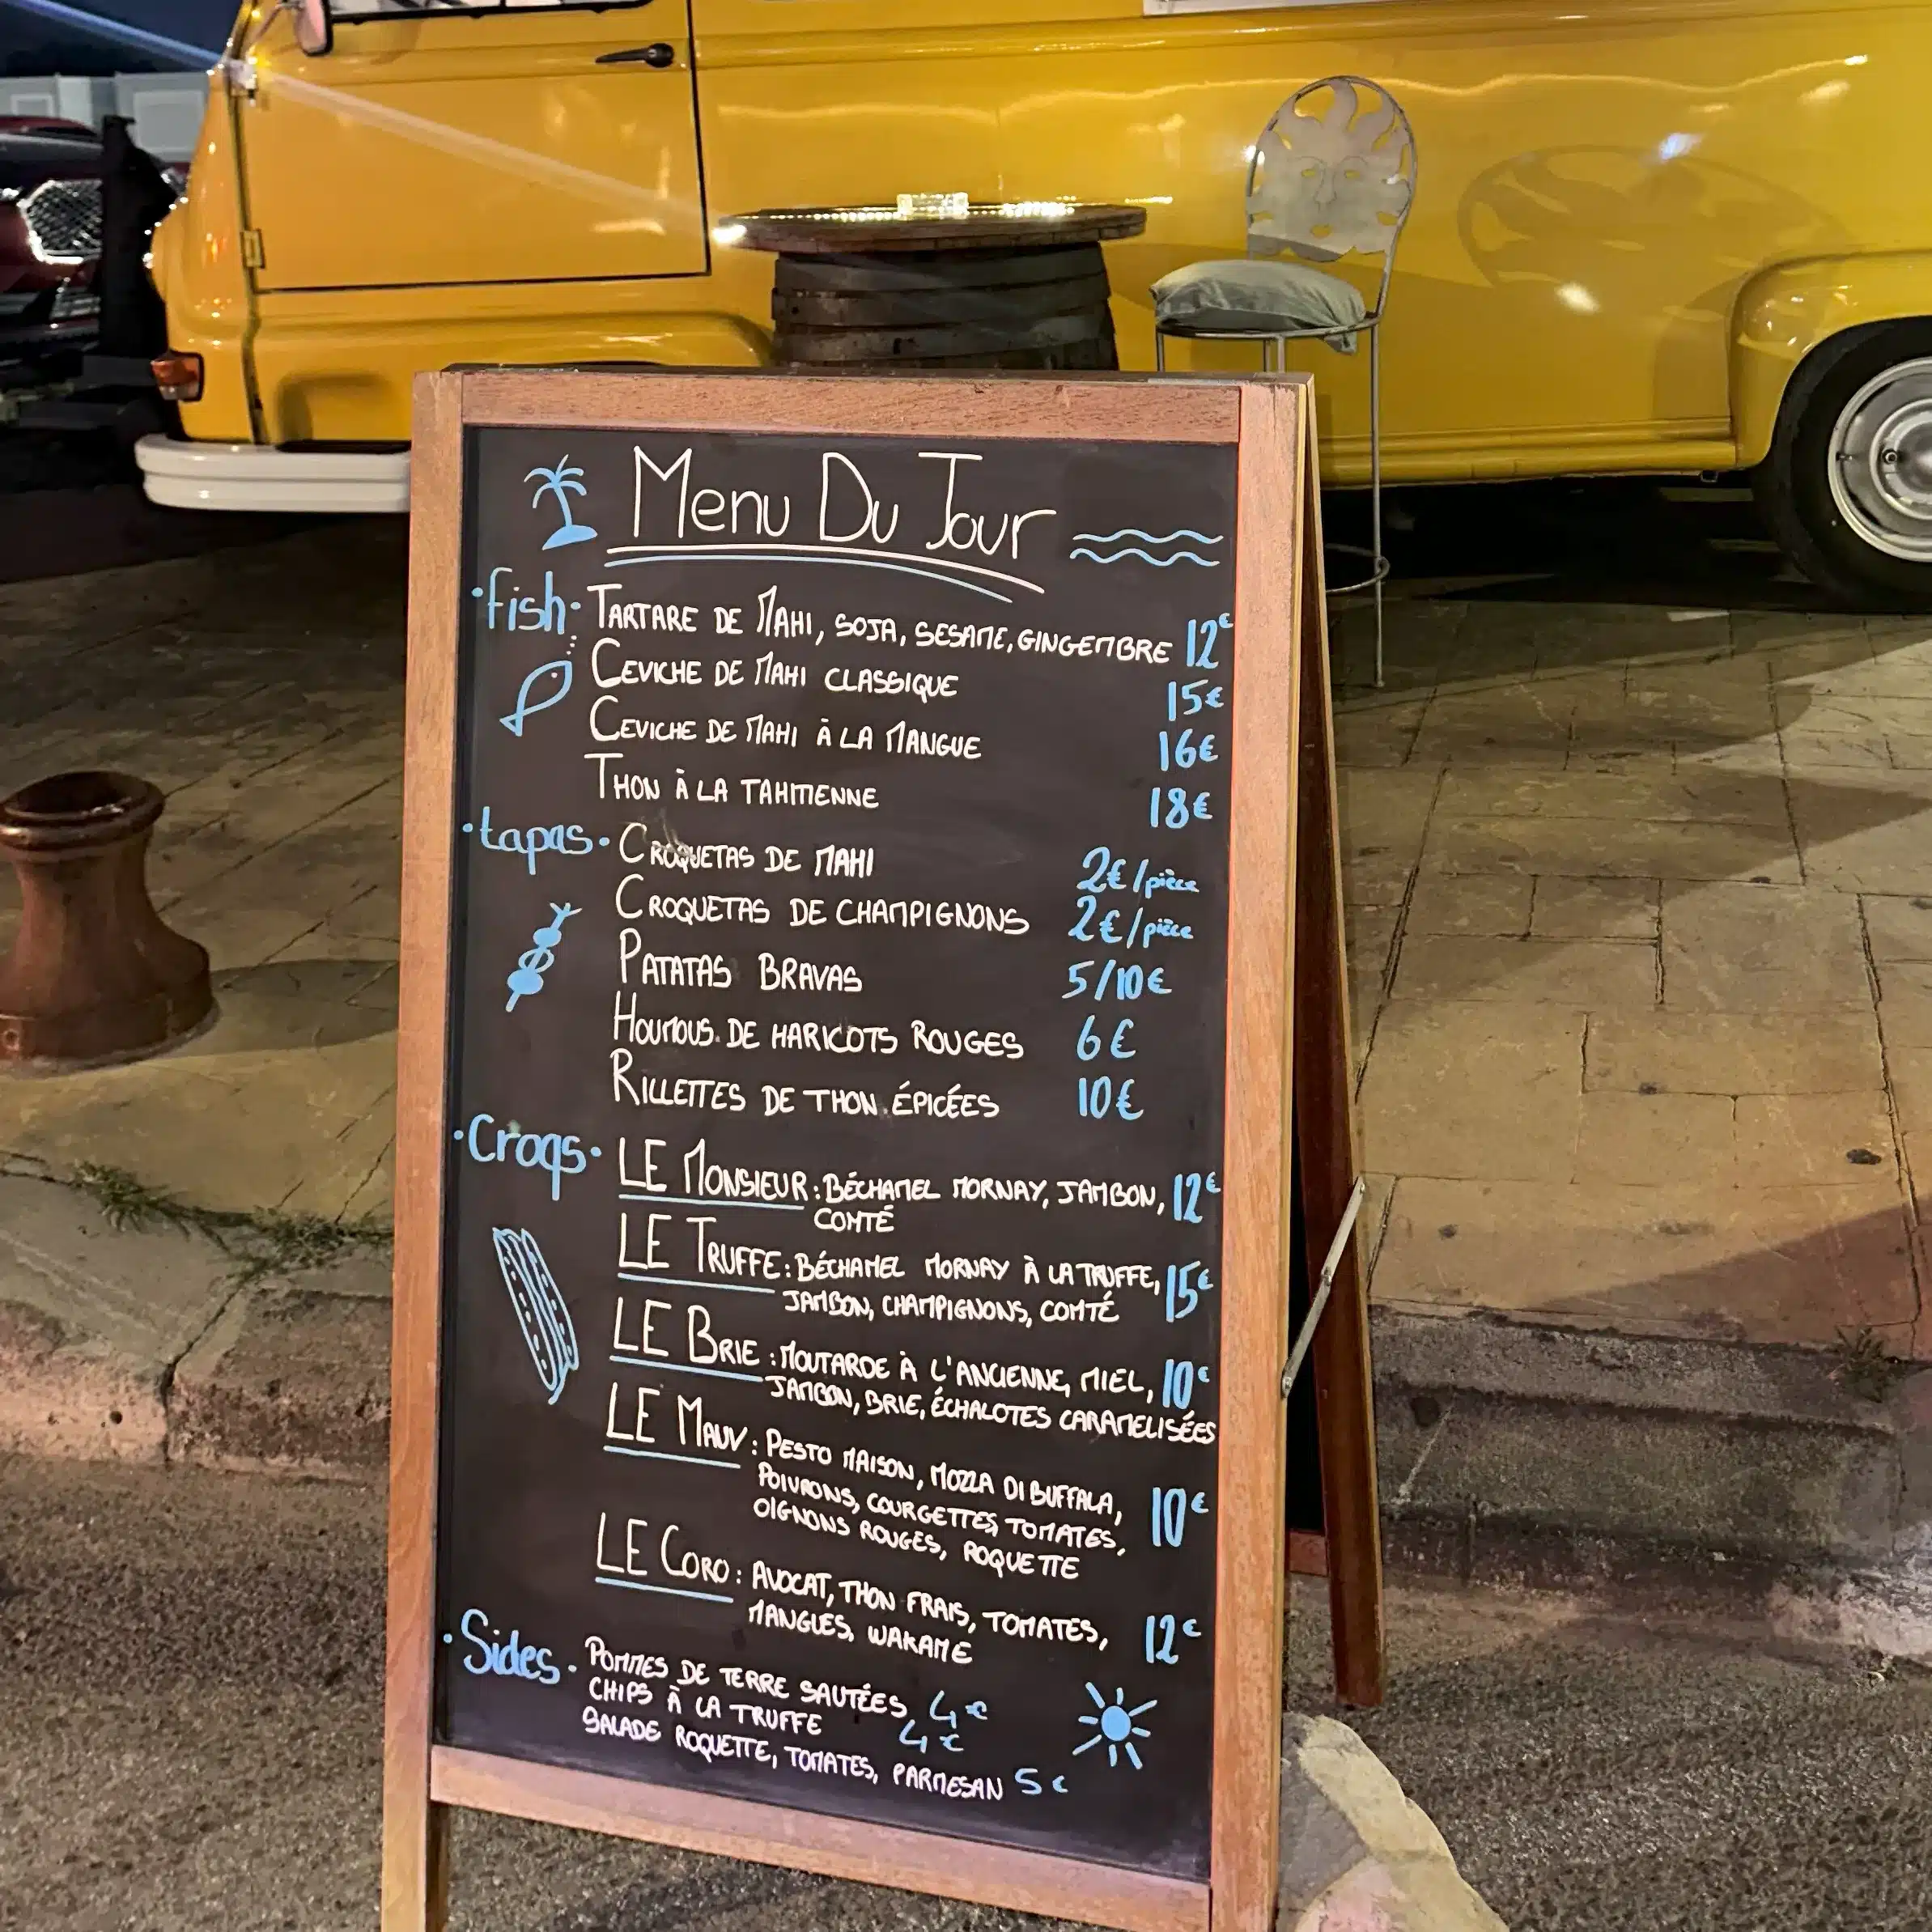 Menu Du Jour
·fish· TARTARE DE MAHI, SOJA, SESAME, GINGEMBRE 12€
CEVICHE DE MAHI CLASSIQUE 15€
CEVICHE DE MAHI À LA MANGUE 16€
THON À LA TAHITIENNE 18€
·tapas· CROQUETAS DE MAHI 2€/pièce
CROQUETAS DE CHAMPIGNONS 2€/pièce
PATATAS BRAVAS 5/10€
HOUMOUS DE HARICOTS ROUGES 6€
RILLETTES DE THON ÉPICÉES 10€
·Croqs· LE MONSIEUR: BÉCHAMEL MORNAY, JAMBON, 12€
COMTÉ
LE TRUFFE: BÉCHAMEL MORNAY À LA TRUFFE, 15€
JAMBON, CHAMPIGNONS, COMTÉ
LE BRIE: MOUTARDE À L'ANCIENNE, MIEL, 10€
JAMBON, BRIE, ÉCHALOTES CARAMELISÉES
LE MAUV: PESTO MAISON, MOZZA DI BUFFALA,
POIVRONS, COURGETTES, TOMATES, 10€
OIGNONS ROUGES, ROQUETTE
LE CORO: AVOCAT, THON FRAIS, TOMATES, 12€
MANGUES, WAKAME
·Sides· POMMES DE TERRE SAUTÉES 4€
CHIPS À LA TRUFFE 4€
SALADE ROQUETTE, TOMATES, PARMESAN 5€